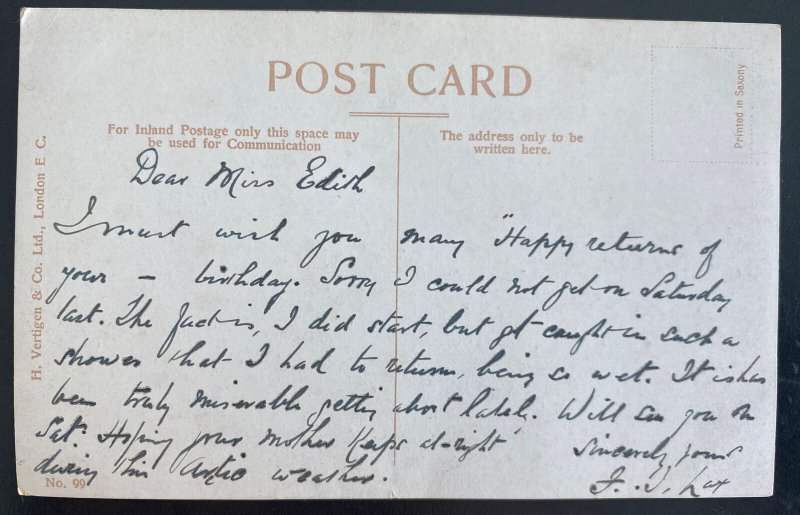 POST CARD
For Inland Postage only this space may
be used for Communication
The address only to be
written here.
Printed in Saxony
H. Vertigen & Co. Ltd., London E C.
Dear Miss Edith
I must wish you many "Happy returns of
your — birthday. Sorry I could not get on Saturday
last. The fact is, I did start, but got caught in such a
shower that I had to return, being so wet. It is has
been truly miserable getting about lately. Will see you on
Sat. Hoping your mother keeps al-right
during this Arctic weather.
Sincerely yours
No. 99